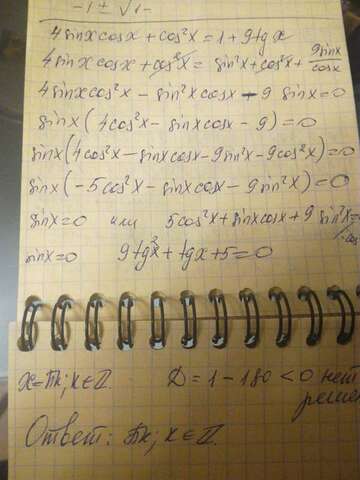 -1 ± √1-
4sinxcosx + cos²x = 1 + 9tgx
4sinxcosx + cos²x = sin²x + cos²x + 9sinx/cosx
4sinxcos²x - sin²xcosx - 9 sinx = 0
sinx(4cos²x - sinxcosx - 9) = 0
sinx(4cos²x - sinxcosx - 9sin²x - 9cos²x) = 0
sinx(-5cos²x - sinxcosx - 9sin²x) = 0
sinx = 0 или 5cos²x + sinxcosx + 9 sin²x =
sinx = 0 9tg²x + tgx + 5 = 0
x = πk; k ∈ ℤ D = 1 - 180 < 0 нет
реше
Ответ: πk; k ∈ ℤ.